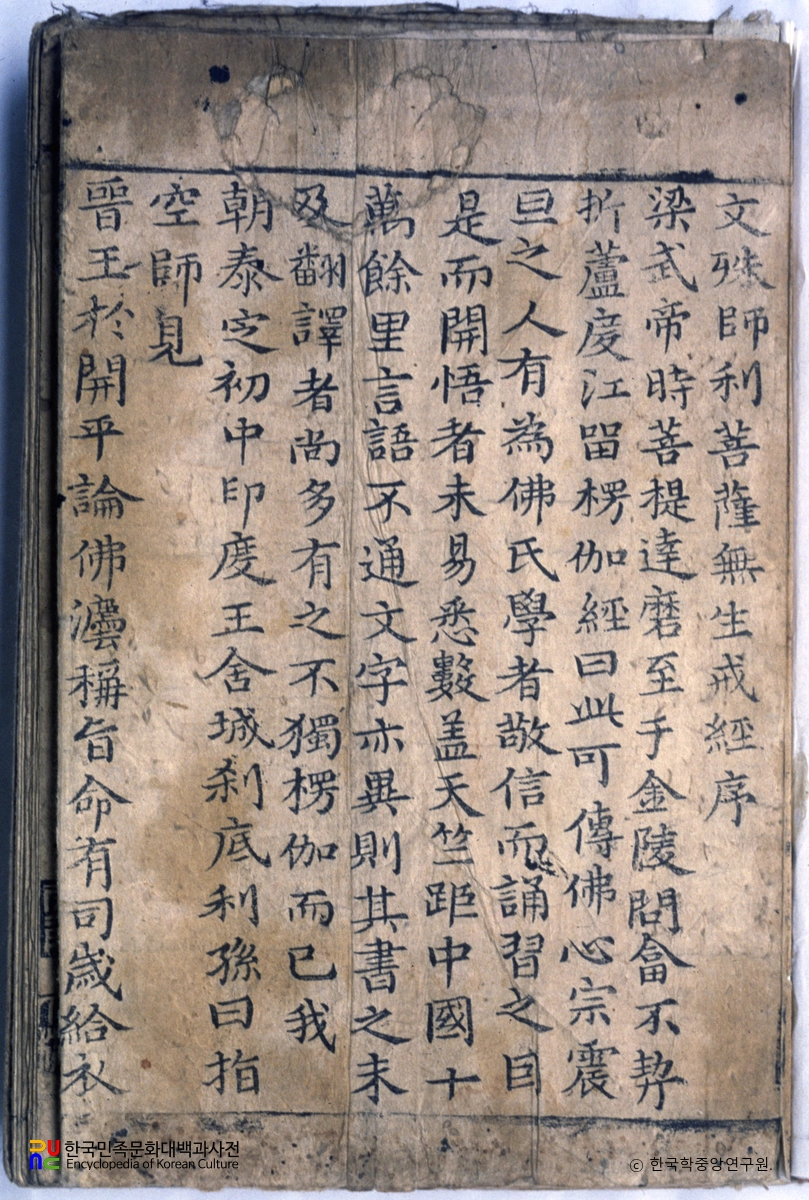 文殊師利菩薩無生戒經序
梁武帝時菩提達磨至于金陵問畣不契
折蘆度江留楞伽經曰此可傳佛心宗震
旦之人有為佛氏學者敬信而誦習之因
是而開悟者未易悉數盖天竺距中國十
萬餘里言語不通文字亦異則其書之未
及翻譯者尚多有之不獨楞伽而已我
朝泰定初中印度王舍城剎底利孫曰指
空師見
晉王於開平論佛灋稱旨命有司歲給衣
한국민족문화대백과사전
Encyclopedia of Korean Culture
© 한국학중앙연구원.